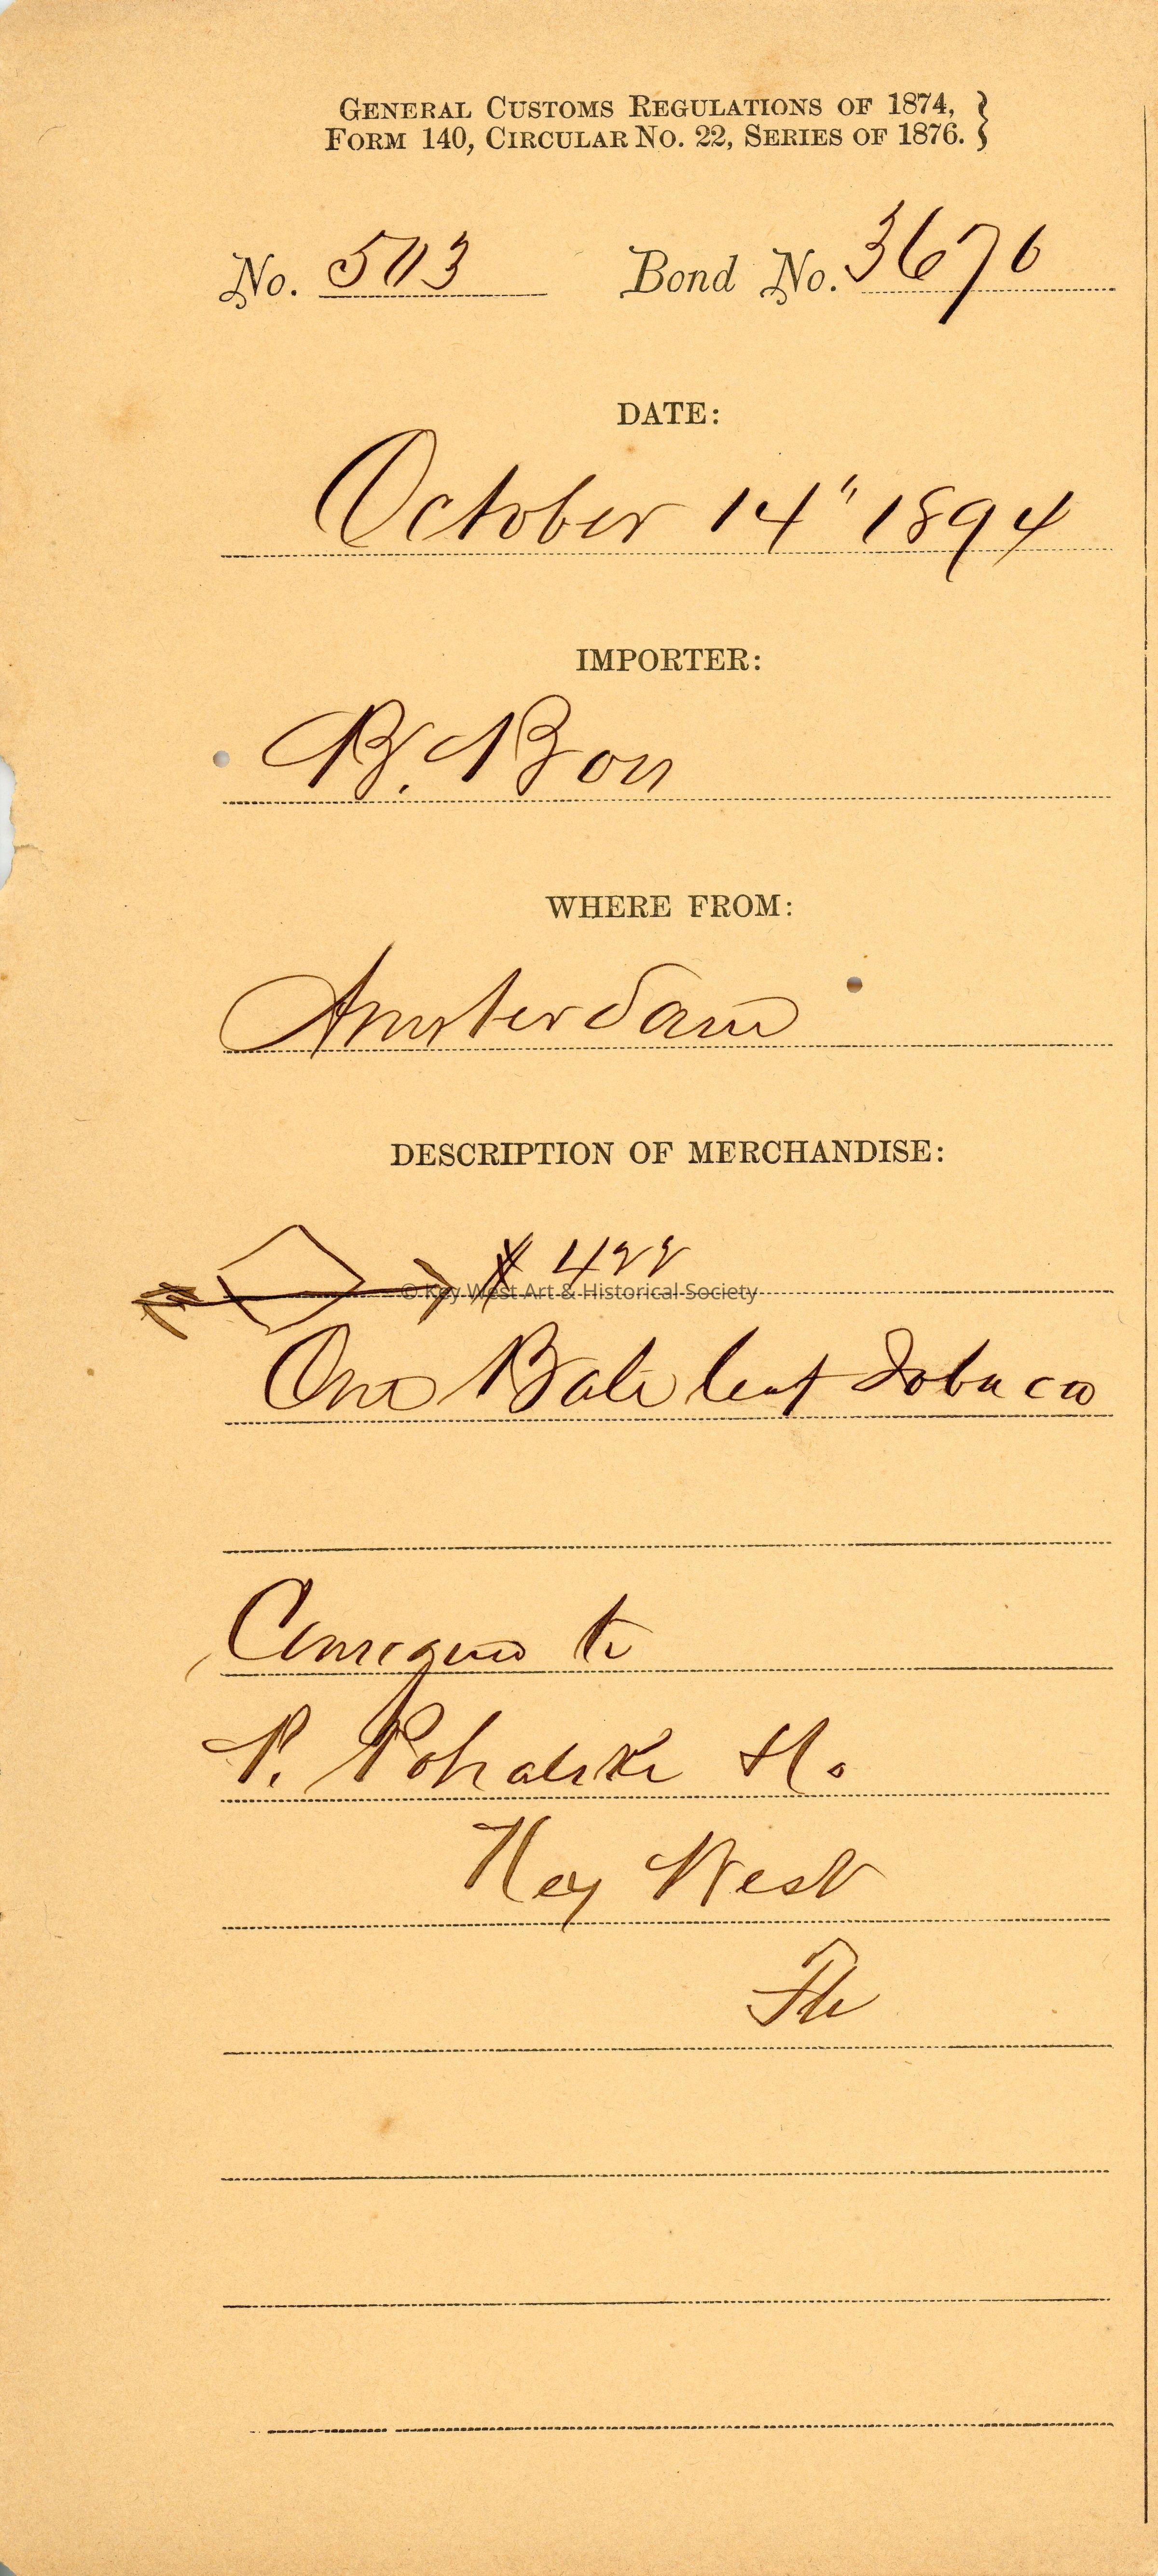 GENERAL CUSTOMS REGULATIONS OF 1874, }
FORM 140, CIRCULAR NO. 22, SERIES OF 1876. }
No. 503 Bond No. 3676
DATE:
October 14" 1894
IMPORTER:
B. Bon
WHERE FROM:
Amsterdam
DESCRIPTION OF MERCHANDISE:
# 422
© Key West Art & Historical Society
One Bale leaf Tobacco
Consigned to
P. Pohalski
Key West
Fla